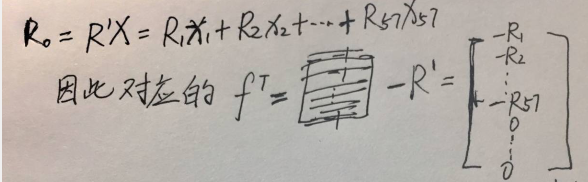 R₀ = R'X = R₁X₁ + R₂X₂ + ⋯ + R57X57
因此对应的 fᵀ = -R' = [ -R₁ -R₂ ⋮ -R57 0 ⋮ 0 ]